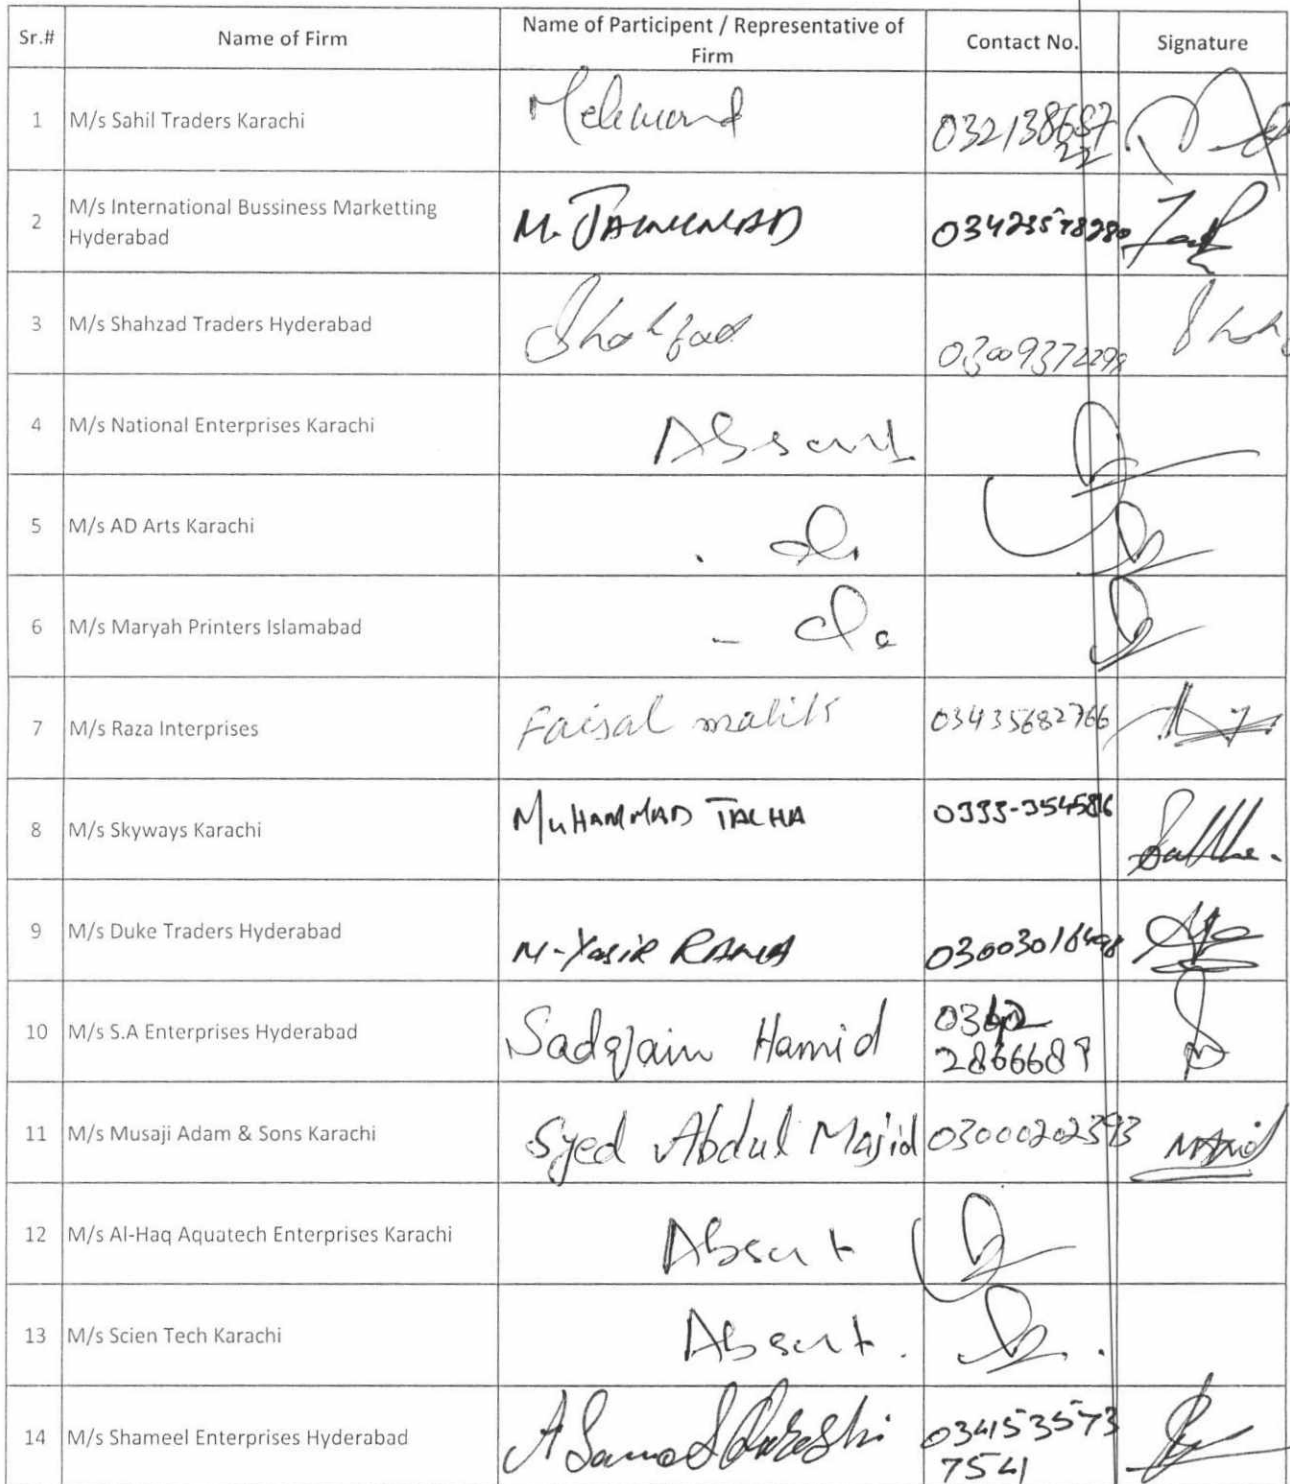 Sr.# Name of Firm Name of Participant / Representative of Firm Contact No. Signature
1 M/s Sahil Traders Karachi 0321386 22
2 M/s International Bussiness Marketting Hyderabad M. 03423578280
3 M/s Shahzad Traders Hyderabad Shahzad 03009372298
4 M/s National Enterprises Karachi Absent
5 M/s AD Arts Karachi
6 M/s Maryah Printers Islamabad
7 M/s Raza Interprises Faisal malik 03435682766
8 M/s Skyways Karachi MUHAMMAD TALHA 0333-3545816
9 M/s Duke Traders Hyderabad M-Yasir RANA 03003016498
10 M/s S.A Enterprises Hyderabad Sadqain Hamid 2866689
11 M/s Musaji Adam & Sons Karachi Syed Abdul Majid 03000202393 Majid
12 M/s Al-Haq Aquatech Enterprises Karachi Absent
13 M/s Scien Tech Karachi Absent.
14 M/s Shameel Enterprises Hyderabad 03415357 7541